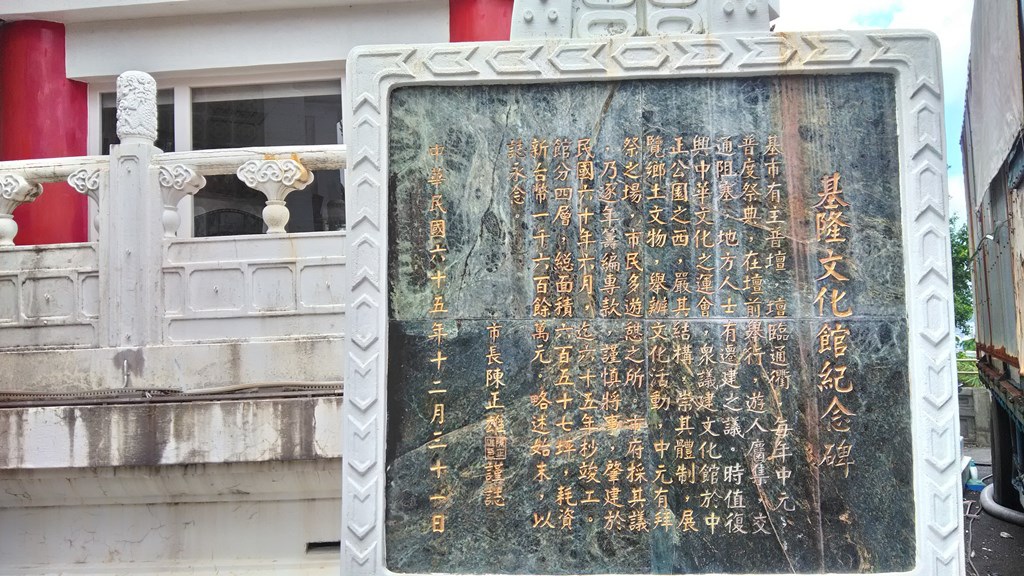 基隆文化館紀念碑
基市有主普壇,壇臨通衢,每年中元,
普度祭典,在壇前舉行,遊人麕集,交
通阻塞,地方人士有遷建之議,時值復
興中華文化之運會,眾議建文化館於中
正公園之西,嚴其結構,崇其體制,展
覽鄉土文物,舉辦文化活動,中元有拜
祭之場,市民多遊憩之所,本府採其議
,乃逐年籌編專款,謹慎將事,肇建於
民國六十年六月,迄六十五年杪竣工。
館分四層,總面積六百五十七坪,耗資
新台幣一千六百餘萬元,略述始末,以
誌永念
市長陳正雄謹誌
中華民國六十五年十二月二十一日